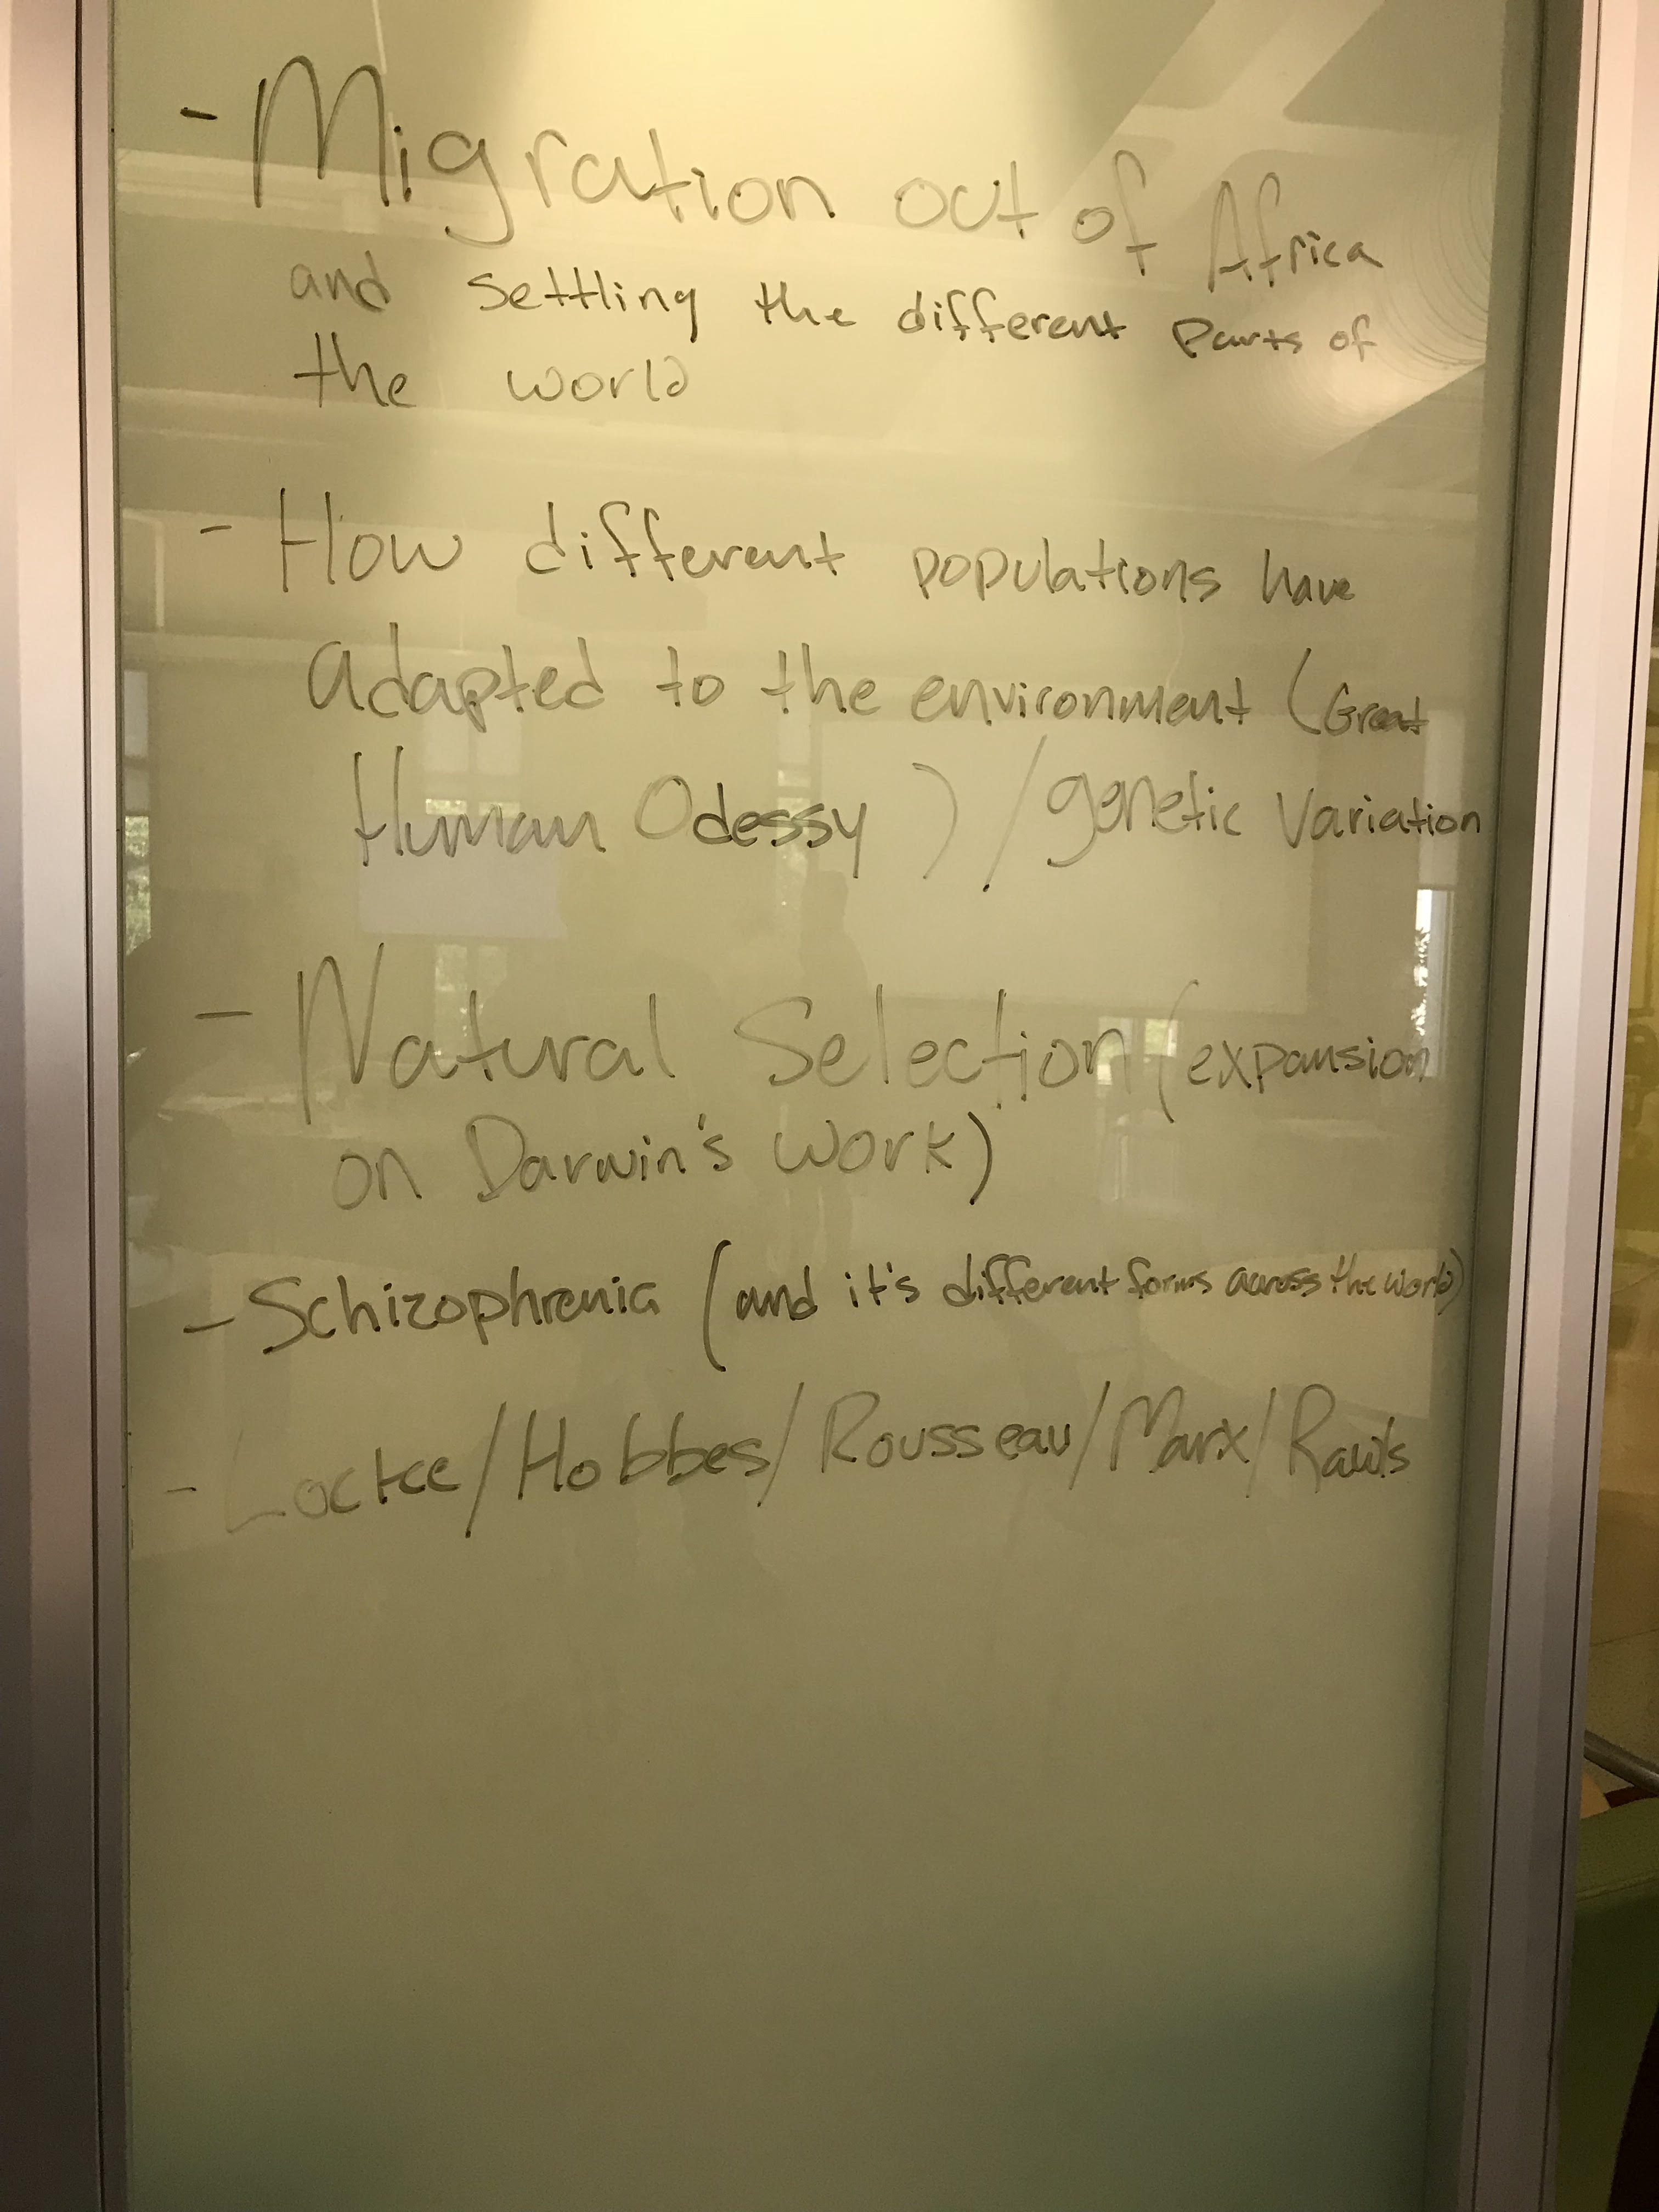 - Migration out of Africa
and settling the different parts of
the world
- How different populations have
adapted to the environment (Great
Human Odessy ) / genetic variation
- Natural Selection (expansion
on Darwin's work)
- Schizophrenia (and it's different forms across the world)
- Locke/Hobbes/Rousseau/Marx/Rawls